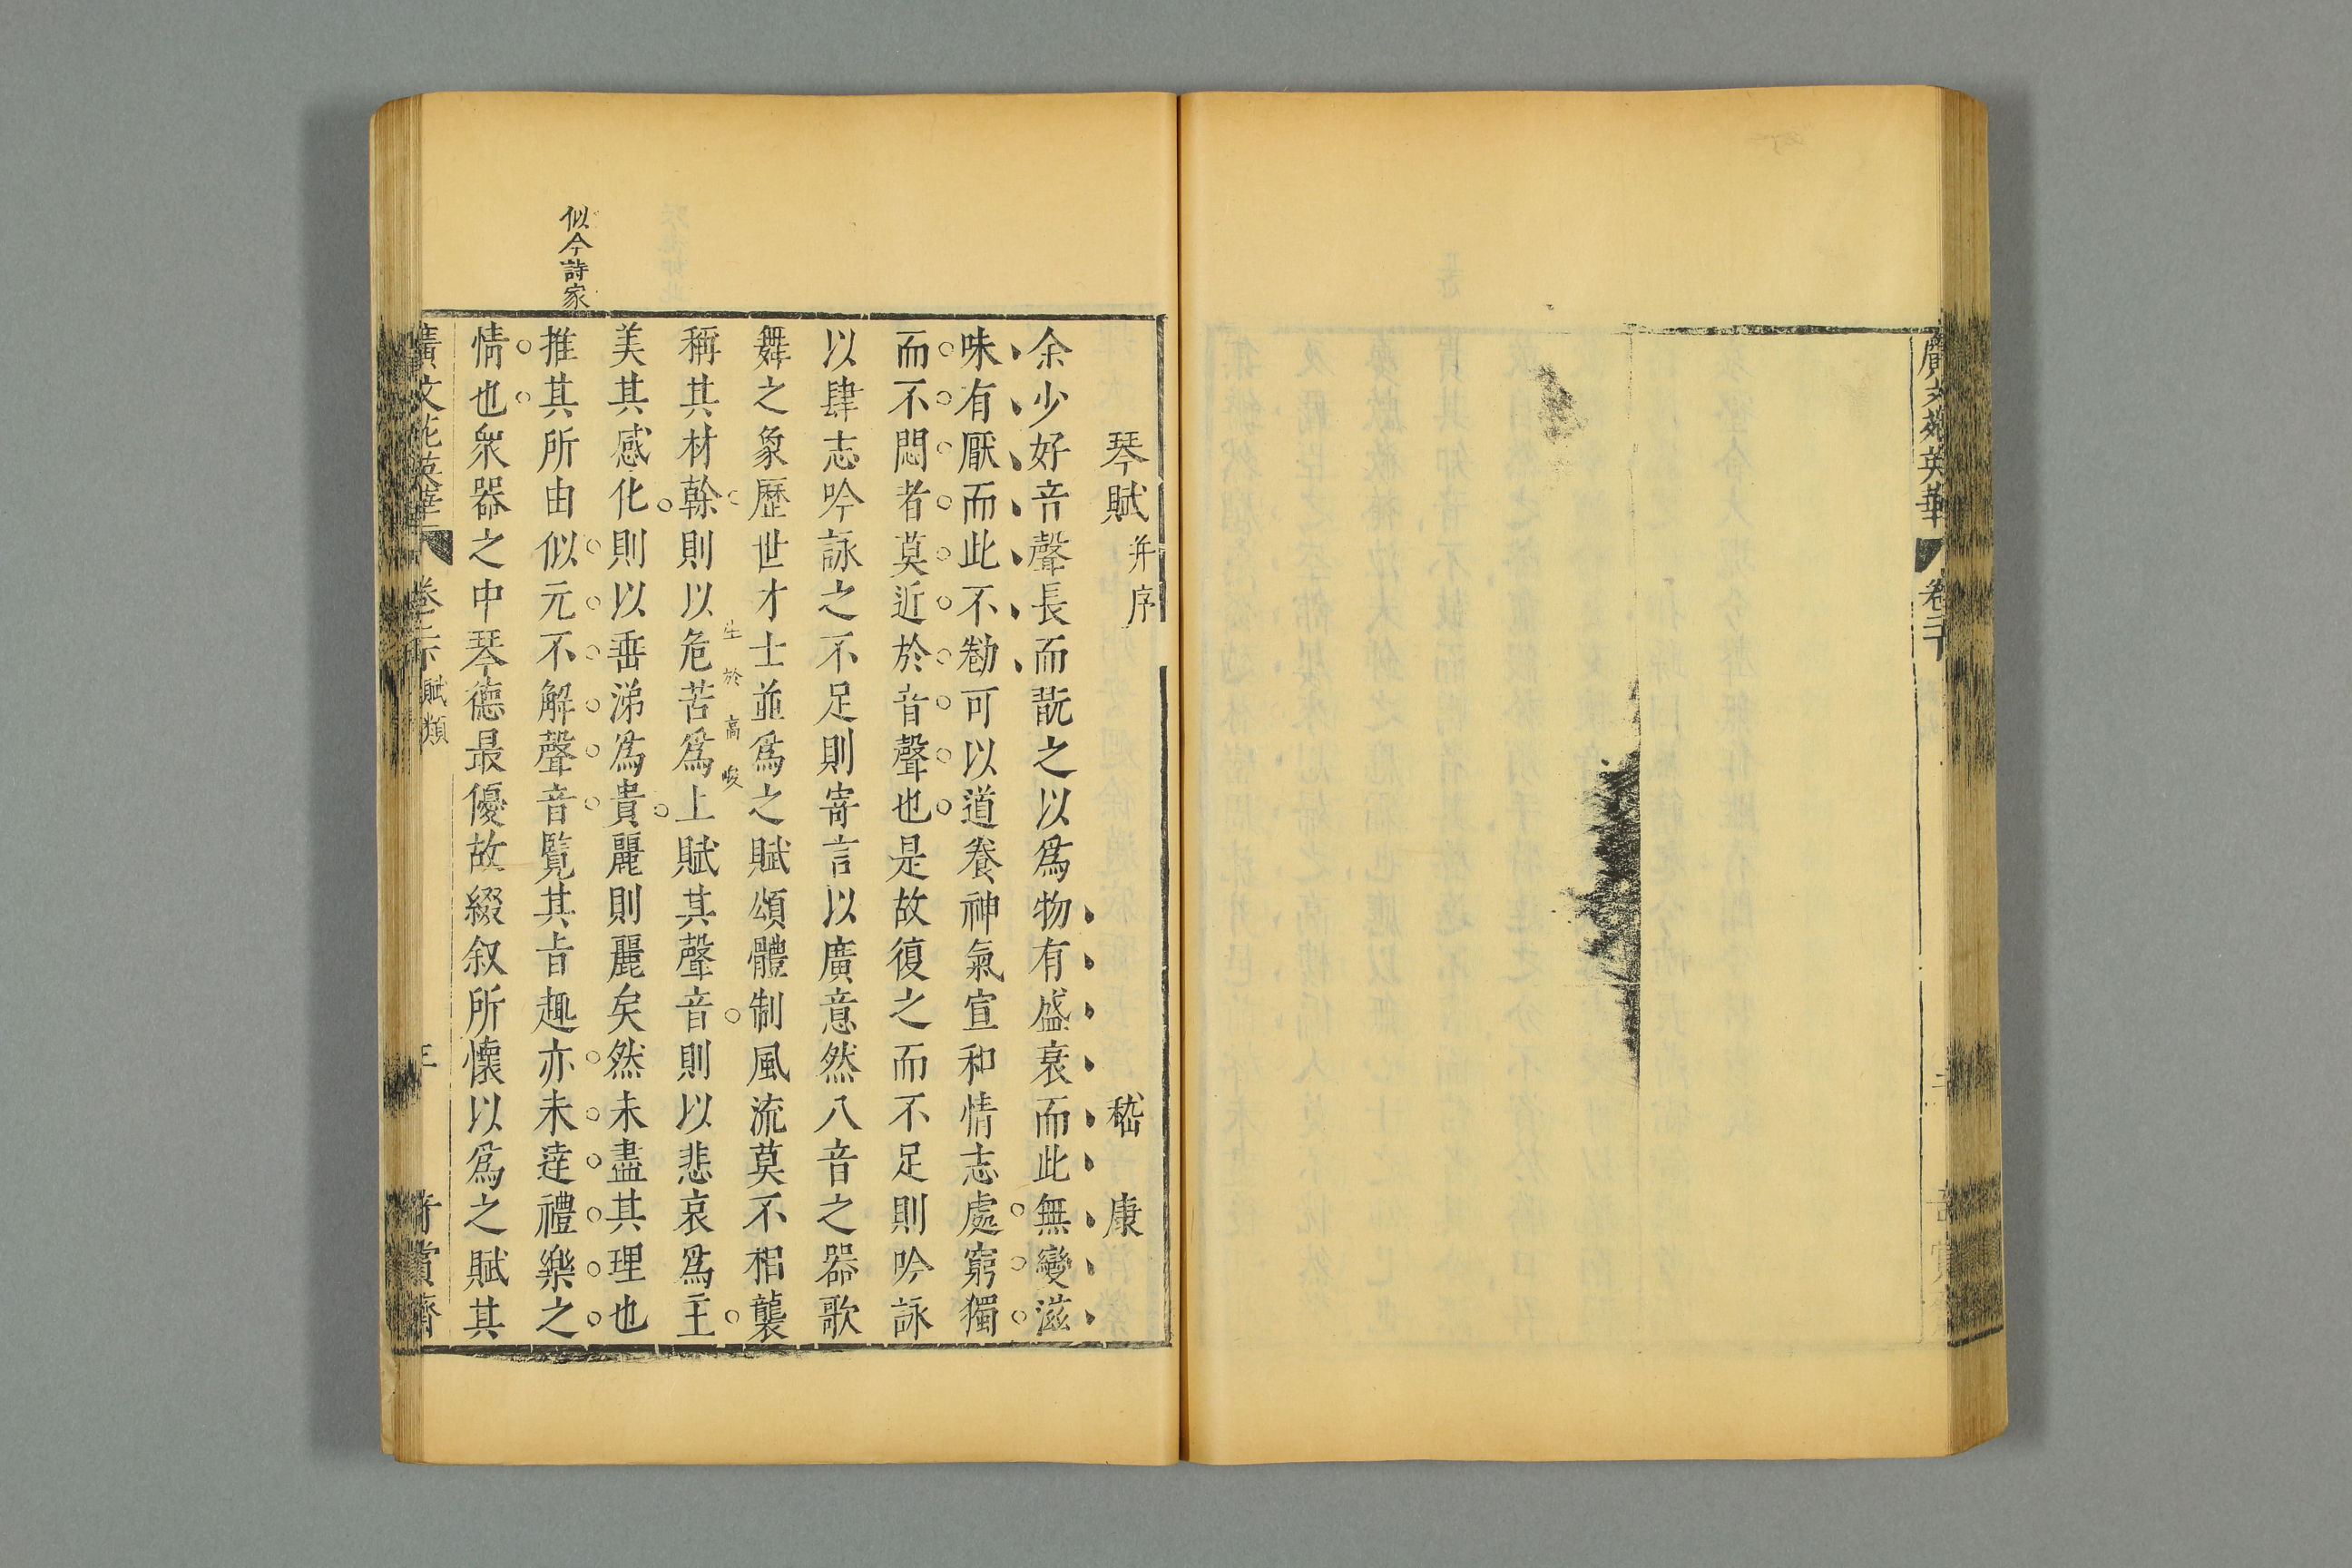 廣文苑英華
琴賦并序 嵇康
余少好音聲長而翫之以爲物有盛衰而此無變滋
味有厭而此不勌可以道養神氣宣和情志處窮獨
而不悶者莫近於音聲也是故復之而不足則吟詠
以肆志吟詠之不足則寄言以廣意然八音之器歌
舞之象歷世才士並爲之賦頌體制風流莫不相襲
生於高峻
稱其材幹則以危苦爲上賦其聲音則以悲哀爲主
美其感化則以垂涕爲貴麗則麗矣然未盡其理也
似今詩家
推其所由似元不解聲音覽其旨趣亦未達禮樂之
情也衆器之中琴德最優故綴叙所懷以爲之賦其
廣文苑英華 賦類